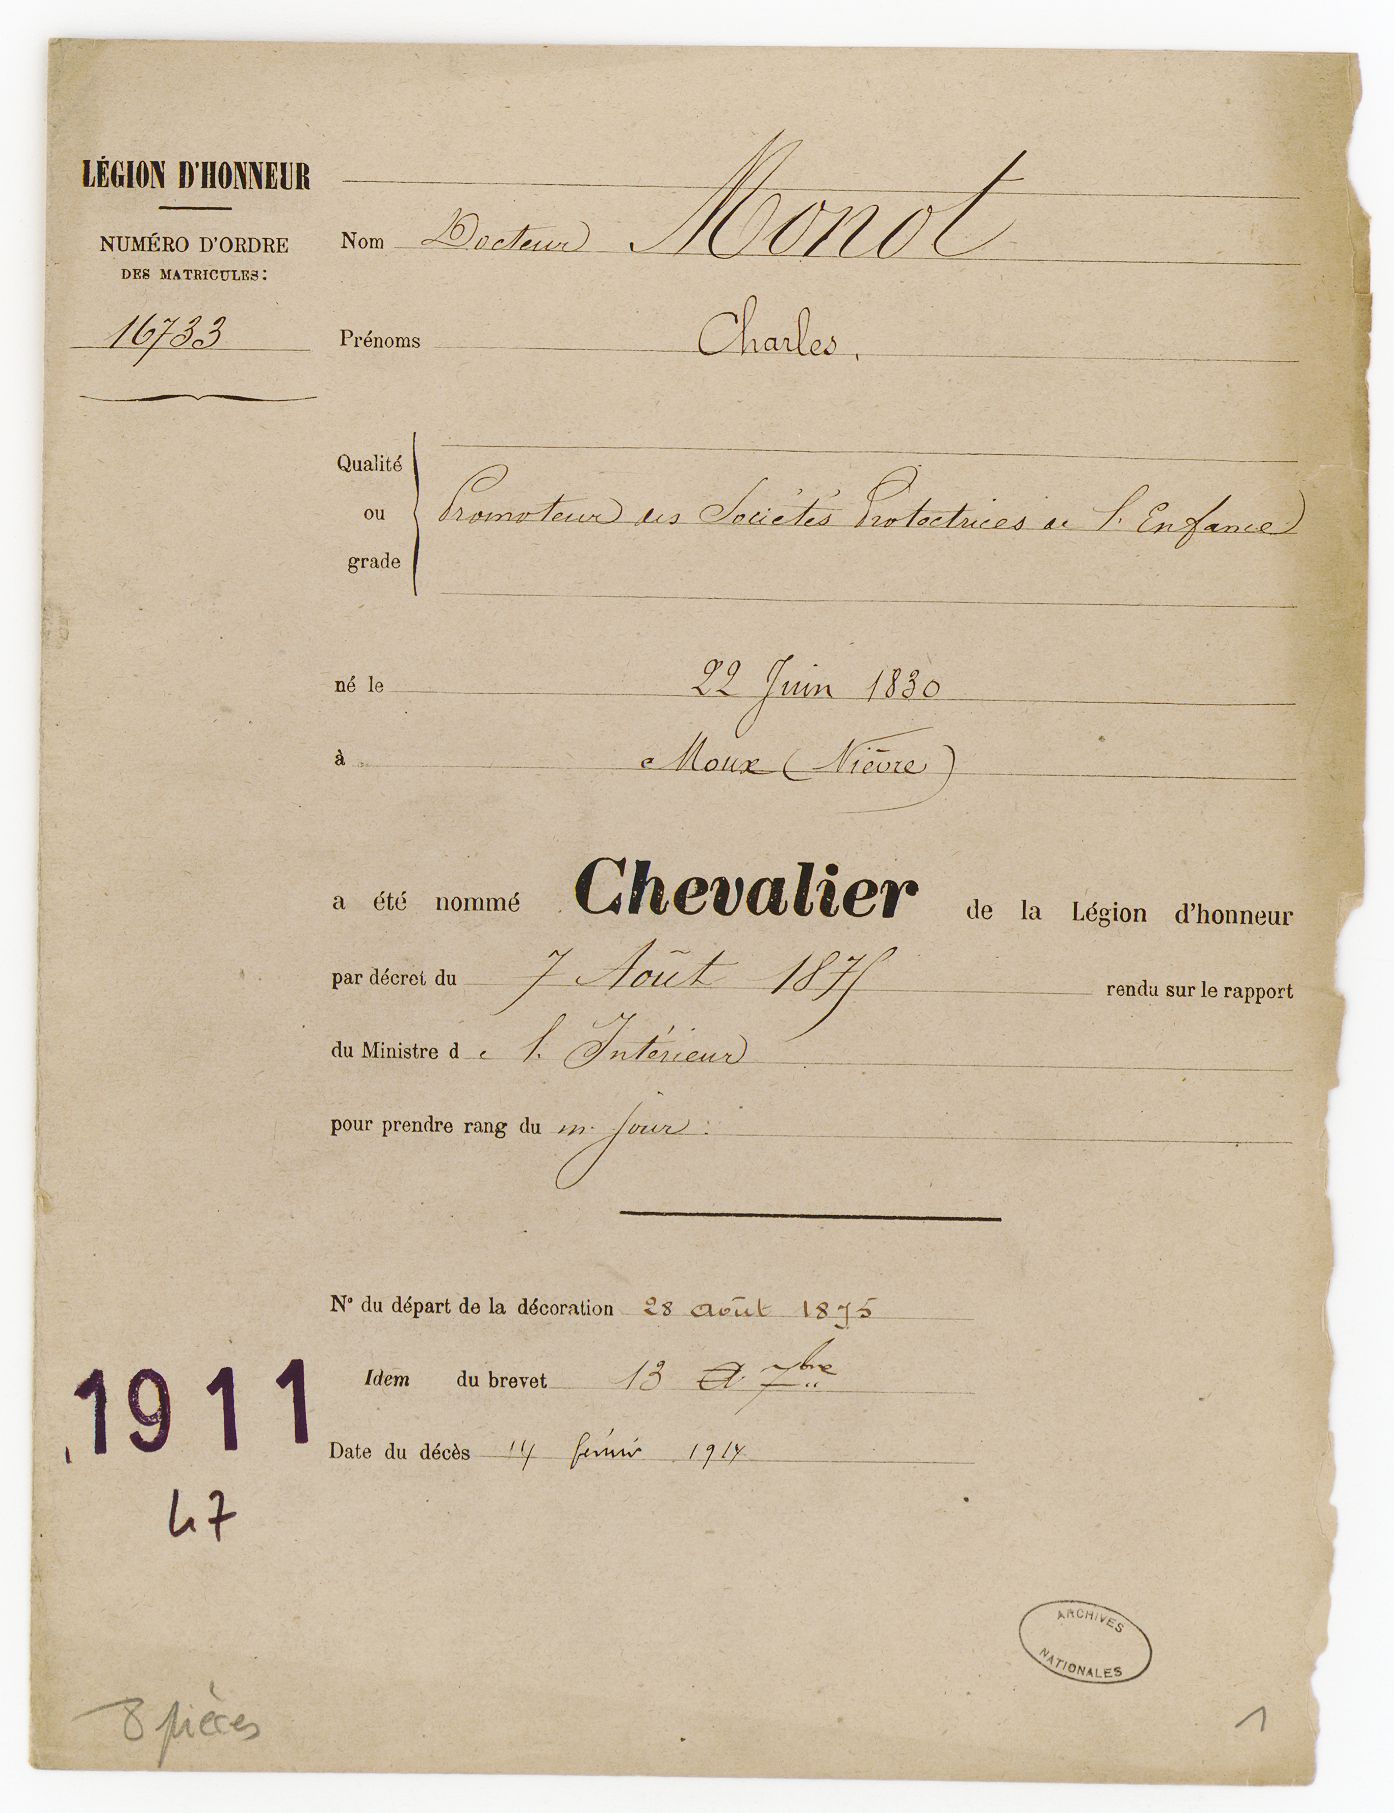 LÉGION D'HONNEUR
NUMÉRO D'ORDRE
DES MATRICULES:
16733
Nom Docteur Monot
Prénoms Charles.
Qualité
ou
grade
Promoteur des Sociétés Protectrices de l'Enfance
né le 22 Juin 1830
à Moux (Nièvre)
a été nommé Chevalier de la Légion d'honneur
par décret du 7 Août 1875 rendu sur le rapport
du Ministre de l'Intérieur
pour prendre rang du m. jour.
N° du départ de la décoration 28 août 1875
Idem du brevet 13 7bre
Date du décès 14 février 1914
1911
47
ARCHIVES
NATIONALES
8 pièces
1